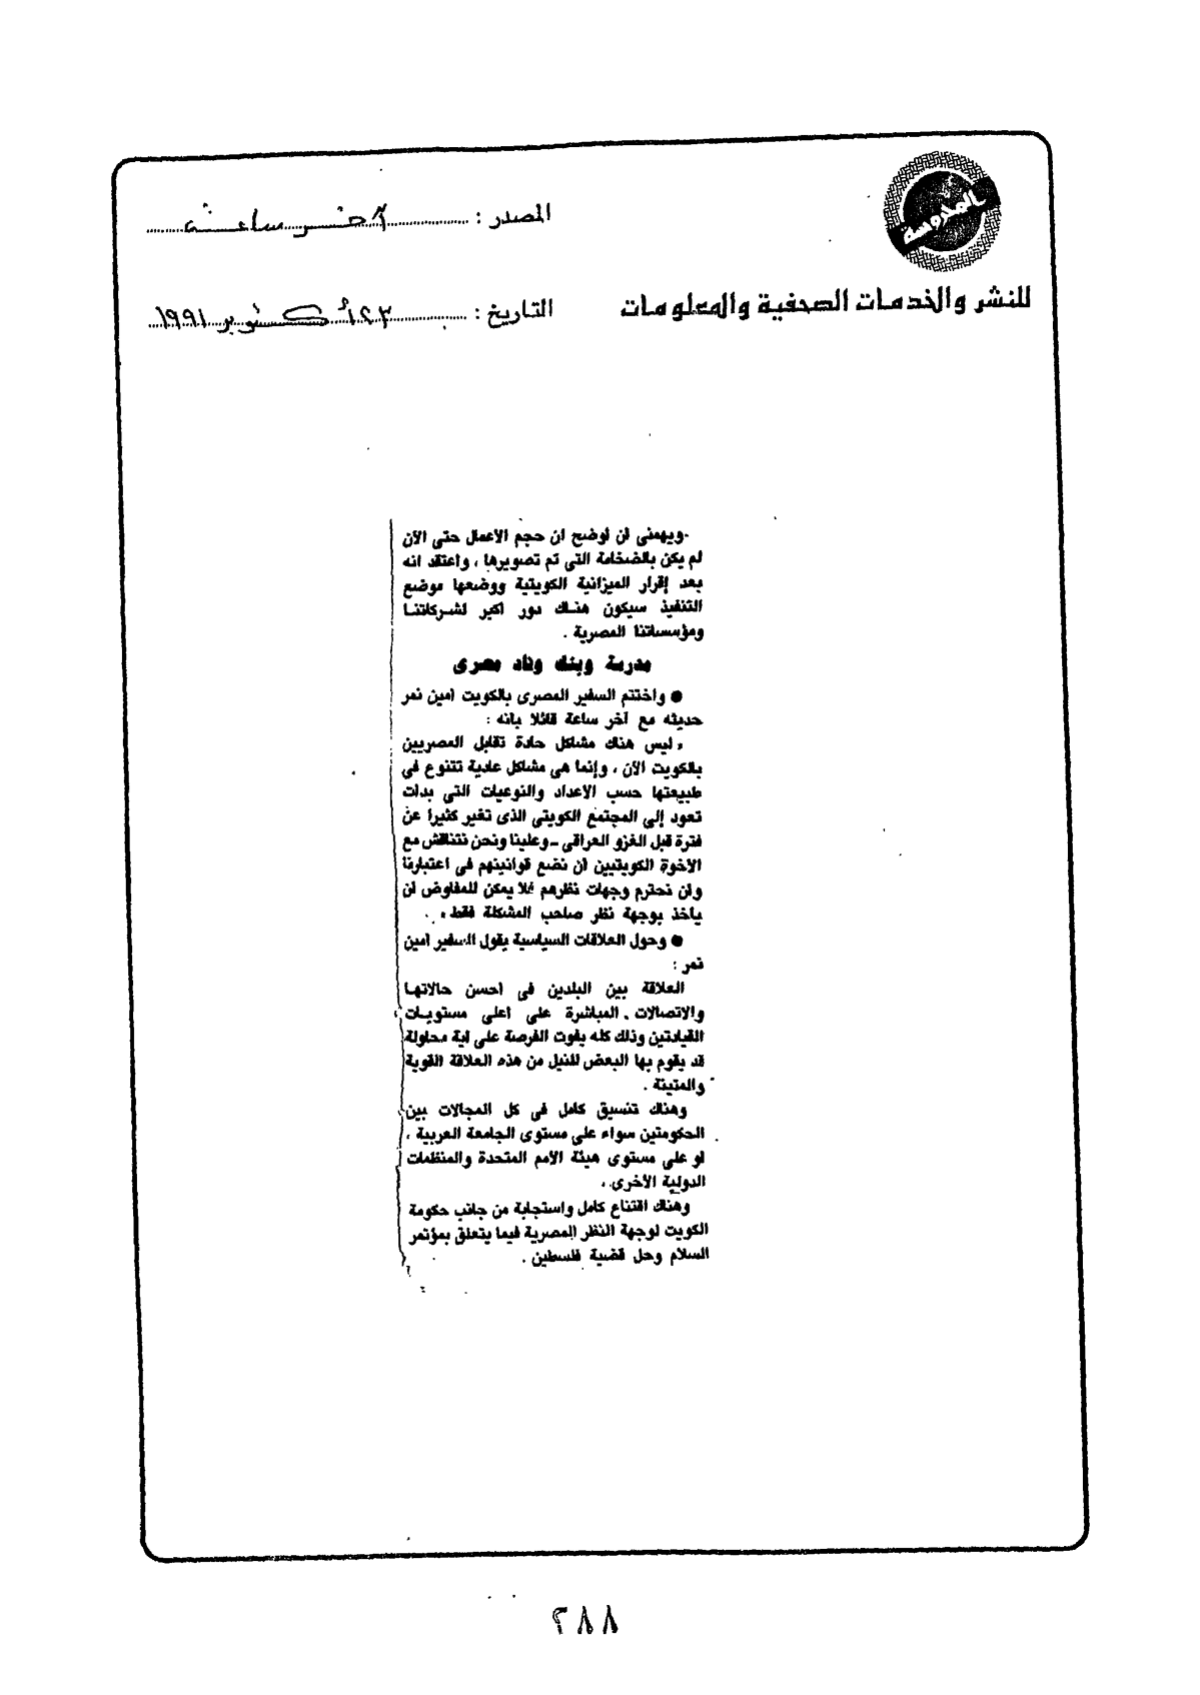 المعلومة
للنشر والخدمات الصحفية والمعلومات
المصدر : آخر ساعة
التاريخ : ٢٣ أكتوبر ١٩٩١
ويهمنى ان اوضح ان حجم الاعمال حتى الآن
لم يكن بالضخامة التى تم تصويرها ، واعتقد انه
بعد إقرار الميزانية الكويتية ووضعها موضع
التنفيذ سيكون هناك دور اكبر لشركاتنا
ومؤسساتنا المصرية .
مدرسة وبنك وناد مصرى
● واختتم السفير المصرى بالكويت امين نمر
حديثه مع آخر ساعة قائلا بانه :
« ليس هناك مشاكل حادة تقابل المصريين
بالكويت الآن ، وإنما هى مشاكل عادية تتنوع فى
طبيعتها حسب الاعداد والنوعيات التى بدات
تعود إلى المجتمع الكويتى الذى تغير كثيرا عن
فترة قبل الغزو العراقى - وعلينا ونحن نتناقش مع
الاخوة الكويتيين ان نضع قوانينهم فى اعتبارنا
وان نحترم وجهات نظرهم فلا يمكن للمفاوض ان
ياخذ بوجهة نظر صاحب المشكلة فقط » .
● وحول العلاقات السياسية يقول السفير امين
نمر :
العلاقة بين البلدين فى احسن حالاتها
والاتصالات المباشرة على اعلى مستويات
القيادتين وذلك كله يفوت الفرصة على اية محاولة
قد يقوم بها البعض للنيل من هذه العلاقة القوية
والمتينة .
وهناك تنسيق كامل فى كل المجالات بين
الحكومتين سواء على مستوى الجامعة العربية ،
او على مستوى هيئة الأمم المتحدة والمنظمات
الدولية الأخرى .
وهناك اقتناع كامل واستجابة من جانب حكومة
الكويت لوجهة النظر المصرية فيما يتعلق بمؤتمر
السلام وحل قضية فلسطين .
٢٨٨